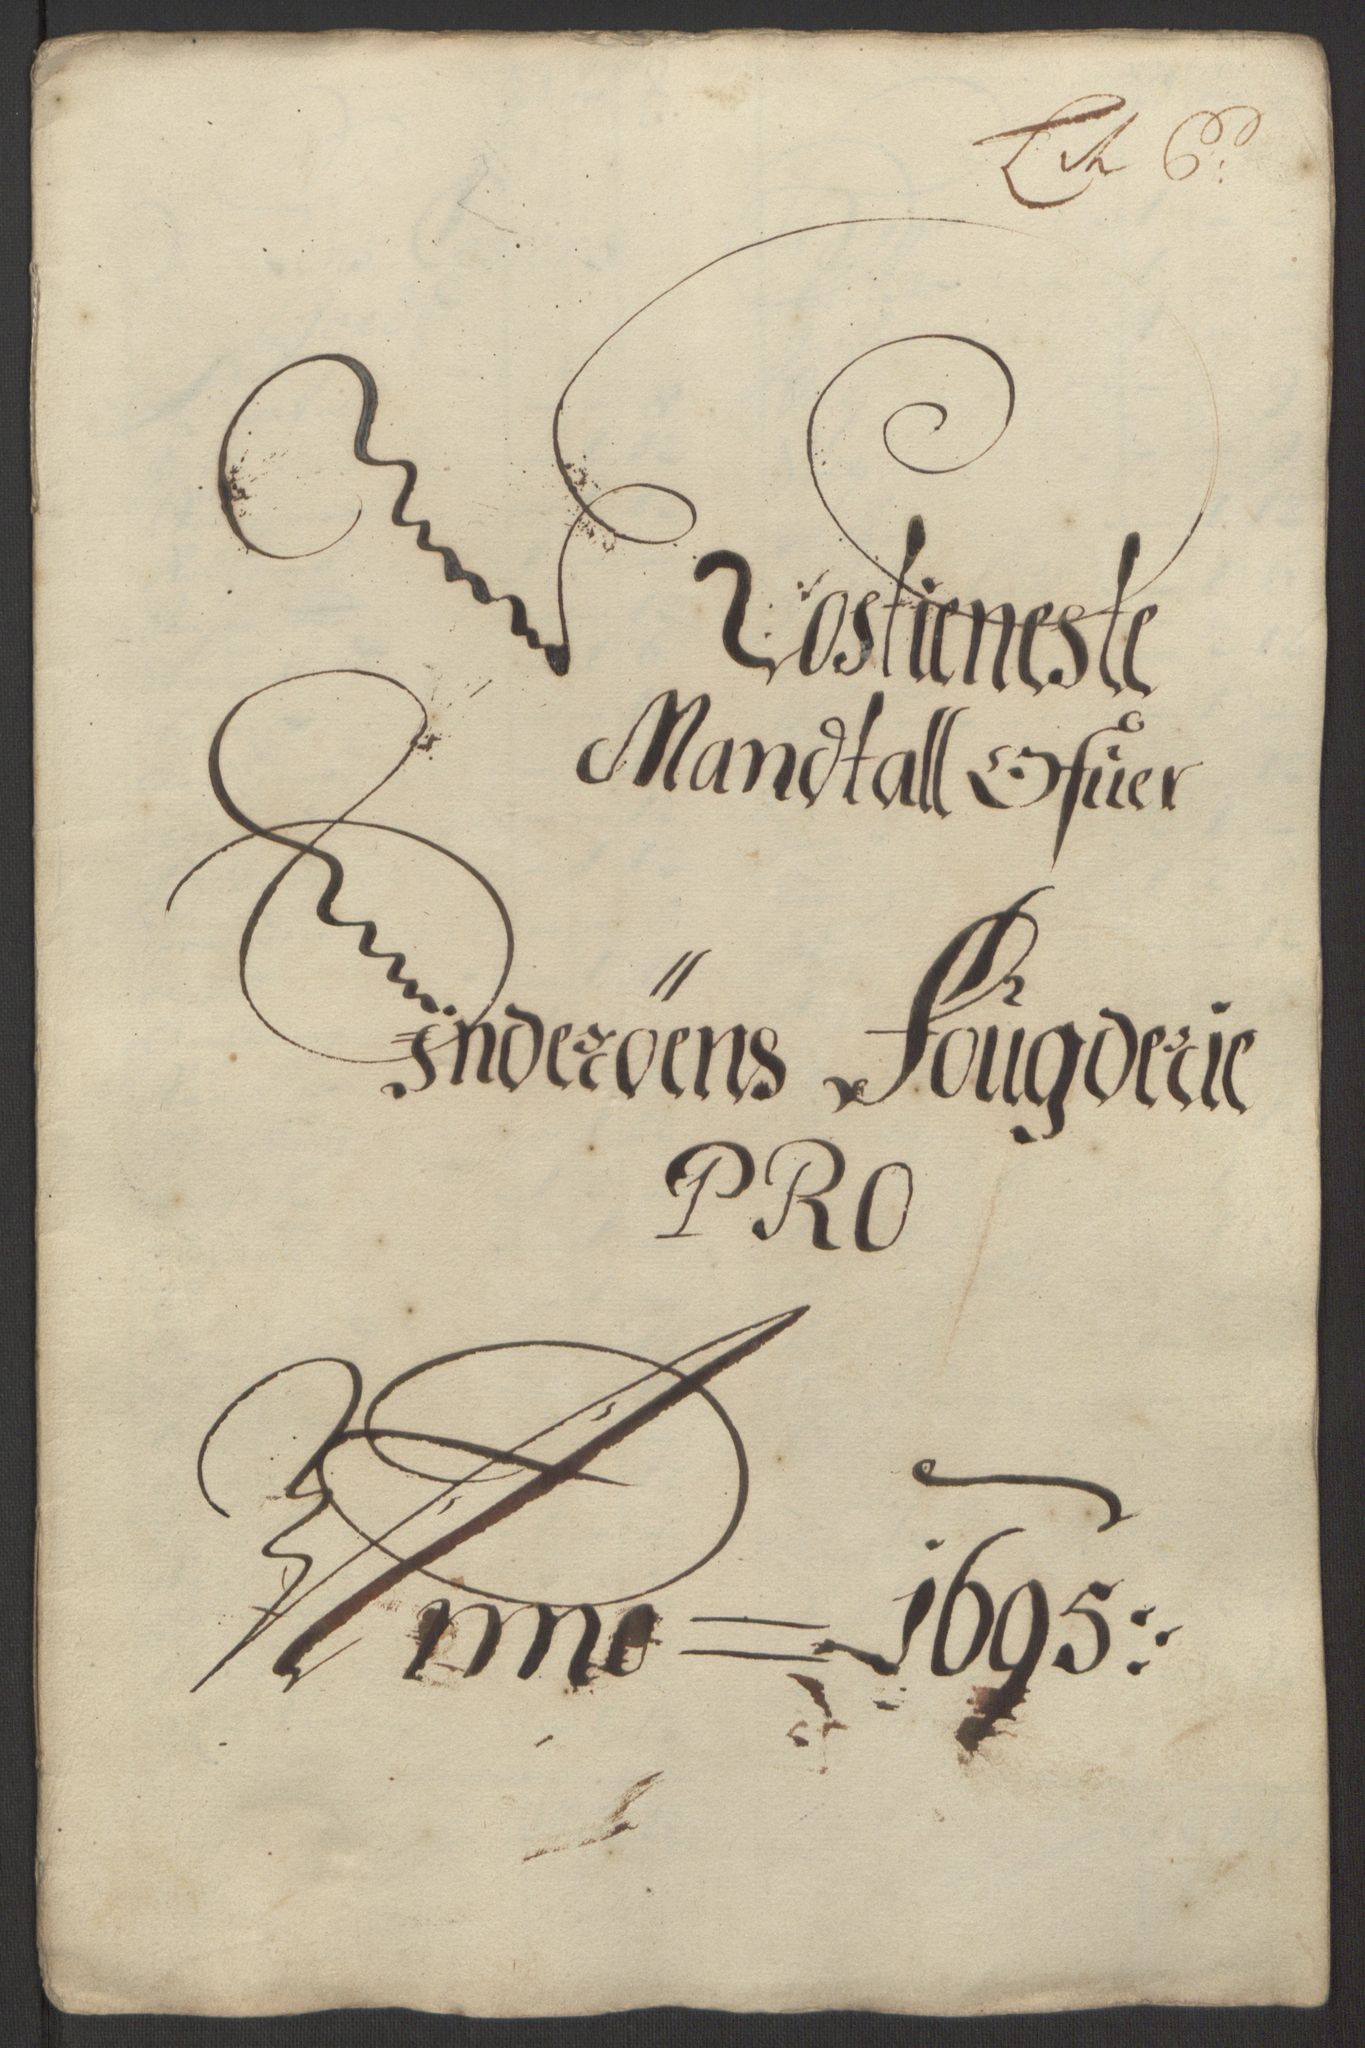 Lit 6:
Rostieneste
Mandtall Ofuer
Inderöens Fougderie
PRO
Anno = 1695: